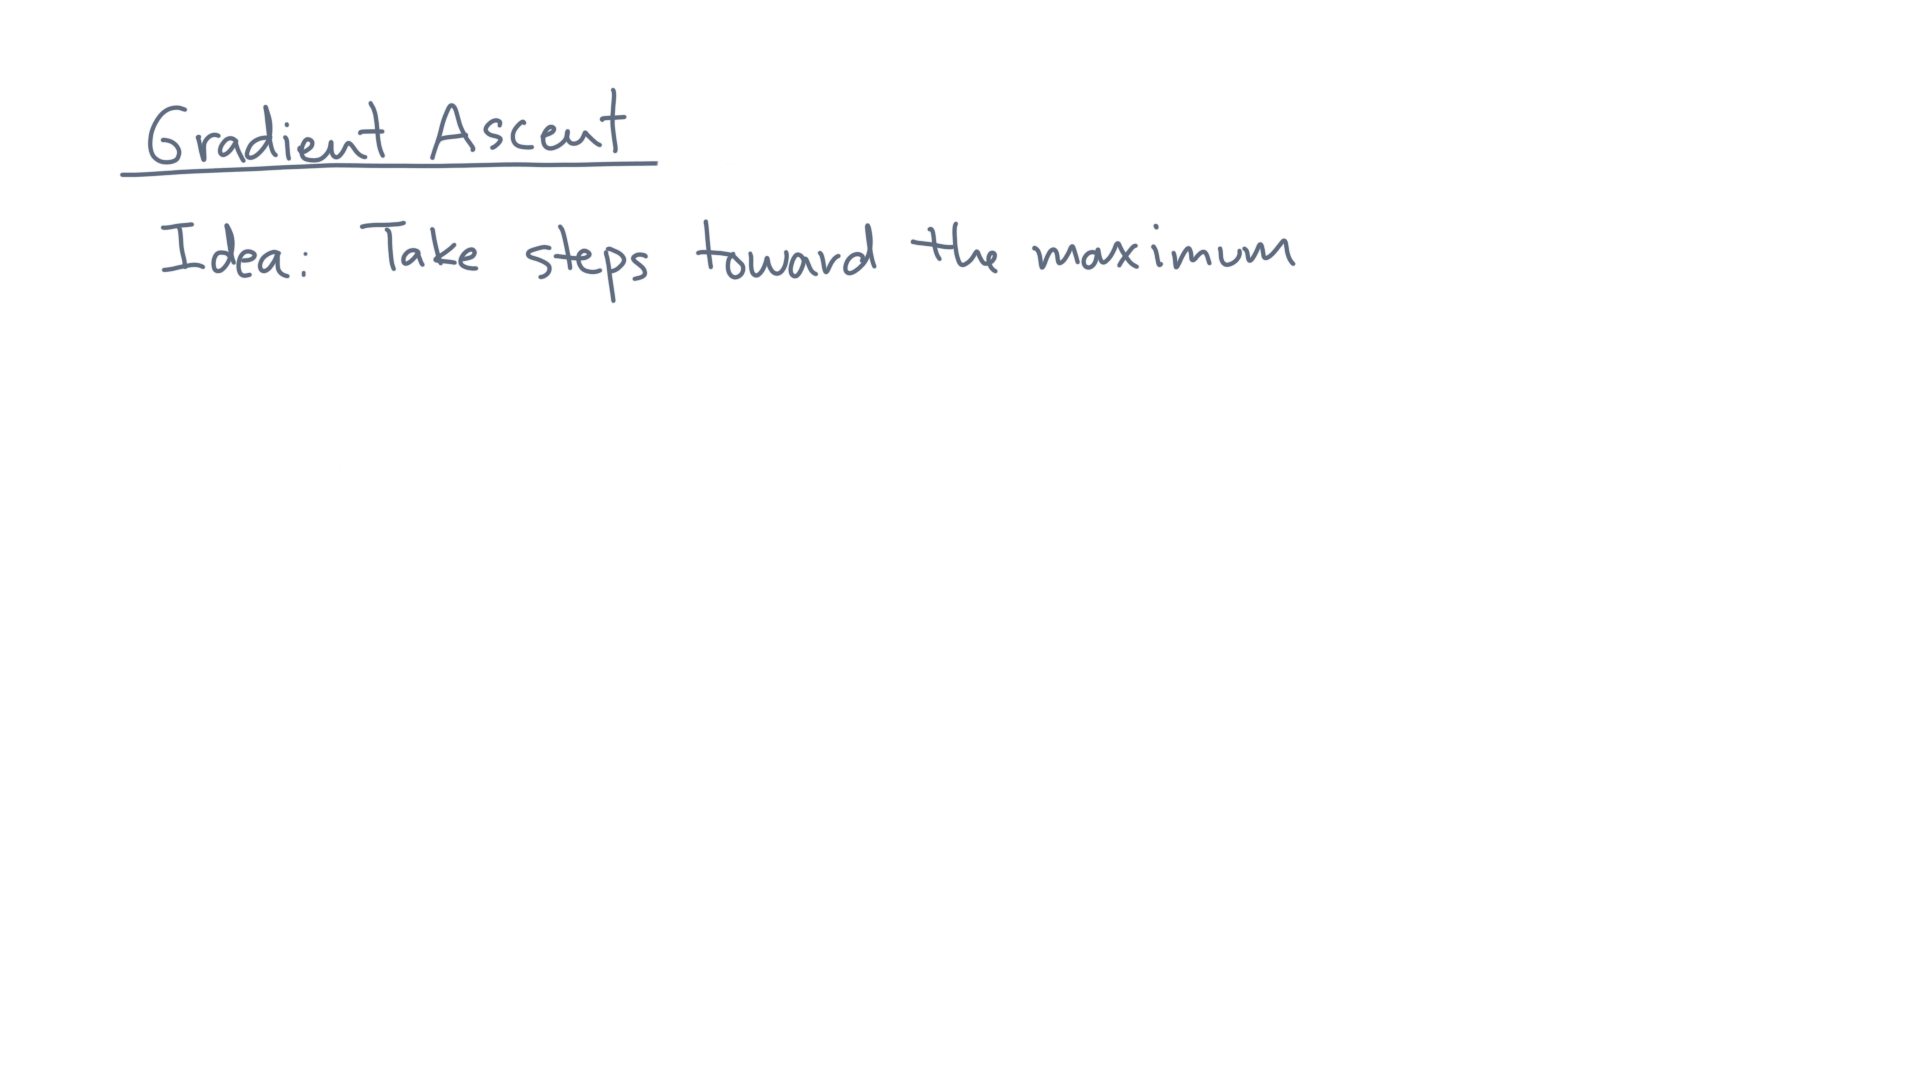 Gradient Ascent
Idea: Take steps toward the maximum